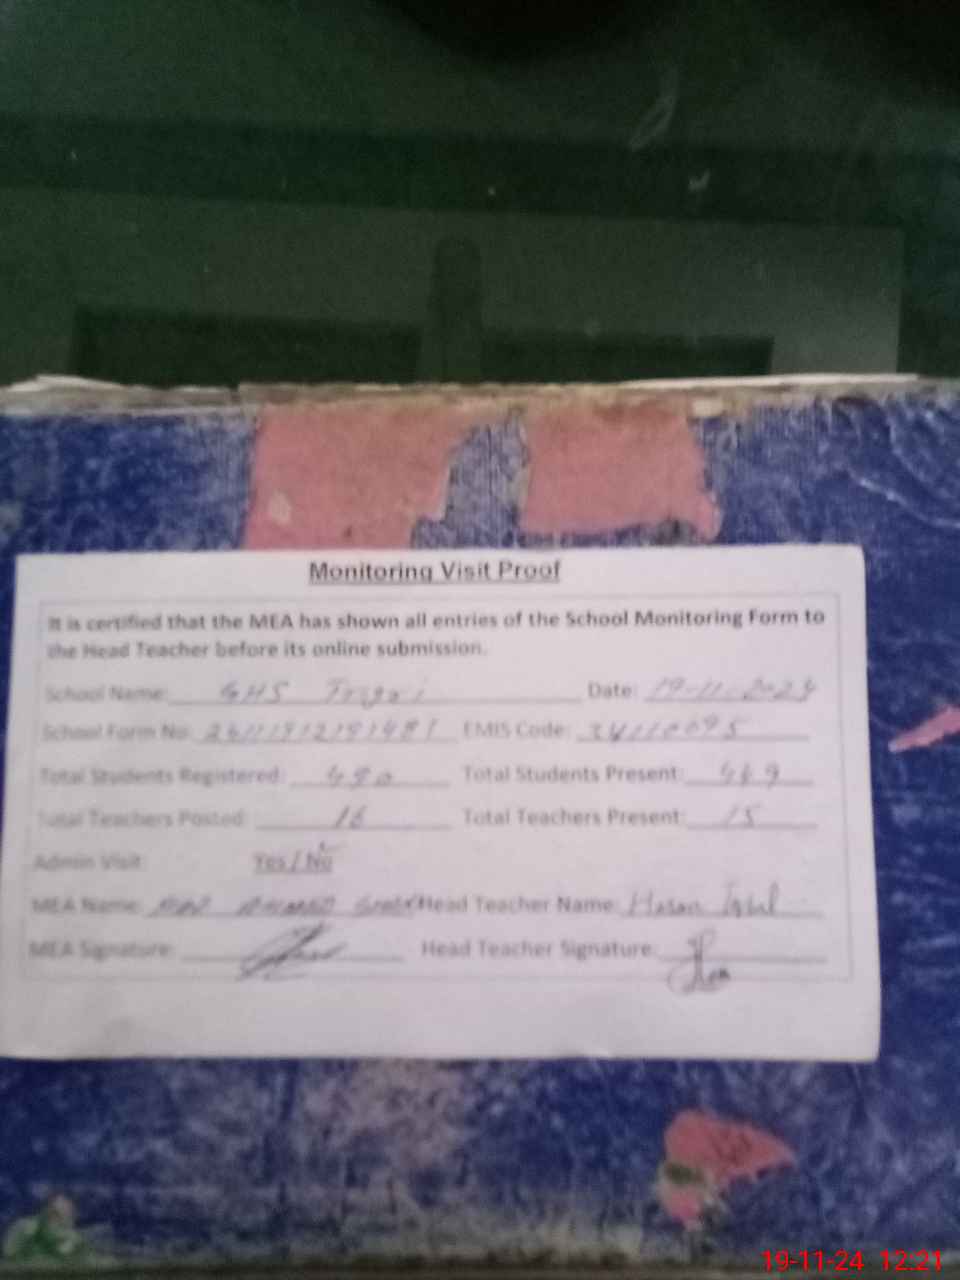 Monitoring Visit Proof
It is certified that the MEA has shown all entries of the School Monitoring Form to
the Head Teacher before its online submission.
School Name: GHS Date: 19-11-2024
School Form No: EMIS Code:
Total Students Registered: 480 Total Students Present:
Total Teachers Posted: 16 Total Teachers Present: 15
Admin Visit: Yes / No
MEA Name: Head Teacher Name: Hasan Iqbal
MEA Signature: Head Teacher Signature:
19-11-24 12:21